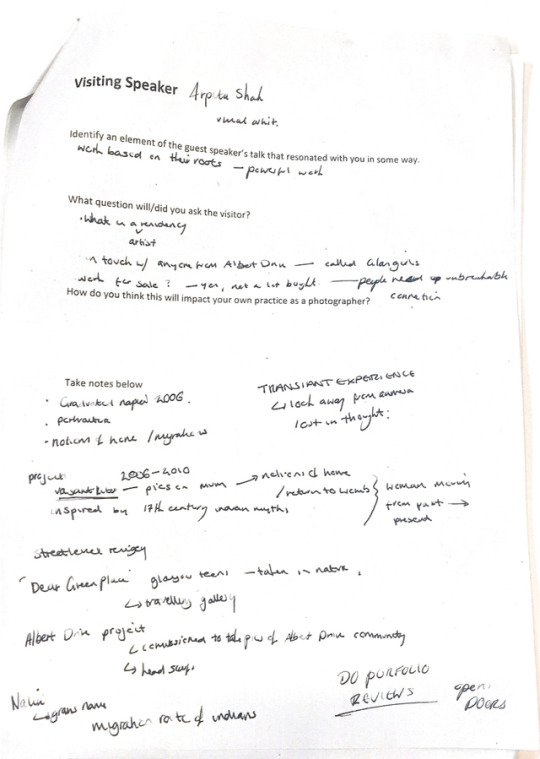 Visiting Speaker Arpita Shah
visual artist.
Identify an element of the guest speaker's talk that resonated with you in some way.
work based on their roots — powerful work
What question will/did you ask the visitor?
• What is a residency
artist
in touch w/ anyone from Albert Drive — called
work for sale? — yes, not a lot bought. — people
How do you think this will impact your own practice as a photographer?
connection
Take notes below
TRANSIANT EXPERIENCE
• Graduated napier 2006.
↳ look away from camera
• portraiture
lost in thought:
• notions of home / migration
project: 2006-2010
— pics on mum → notions of home
/ return to womb } woman moving
inspired by 17th century indian myths,
from past →
present
"Dear Green Place" glasgow teens — taken in nature.
↳ travelling gallery
Albert Drive project
↳ commissioned to take pics of Albert Drive community
↳ head
Nalini
↳ grans name
migration route of indians
DO PORFOLIO
REVIEWS
open:
DOORS